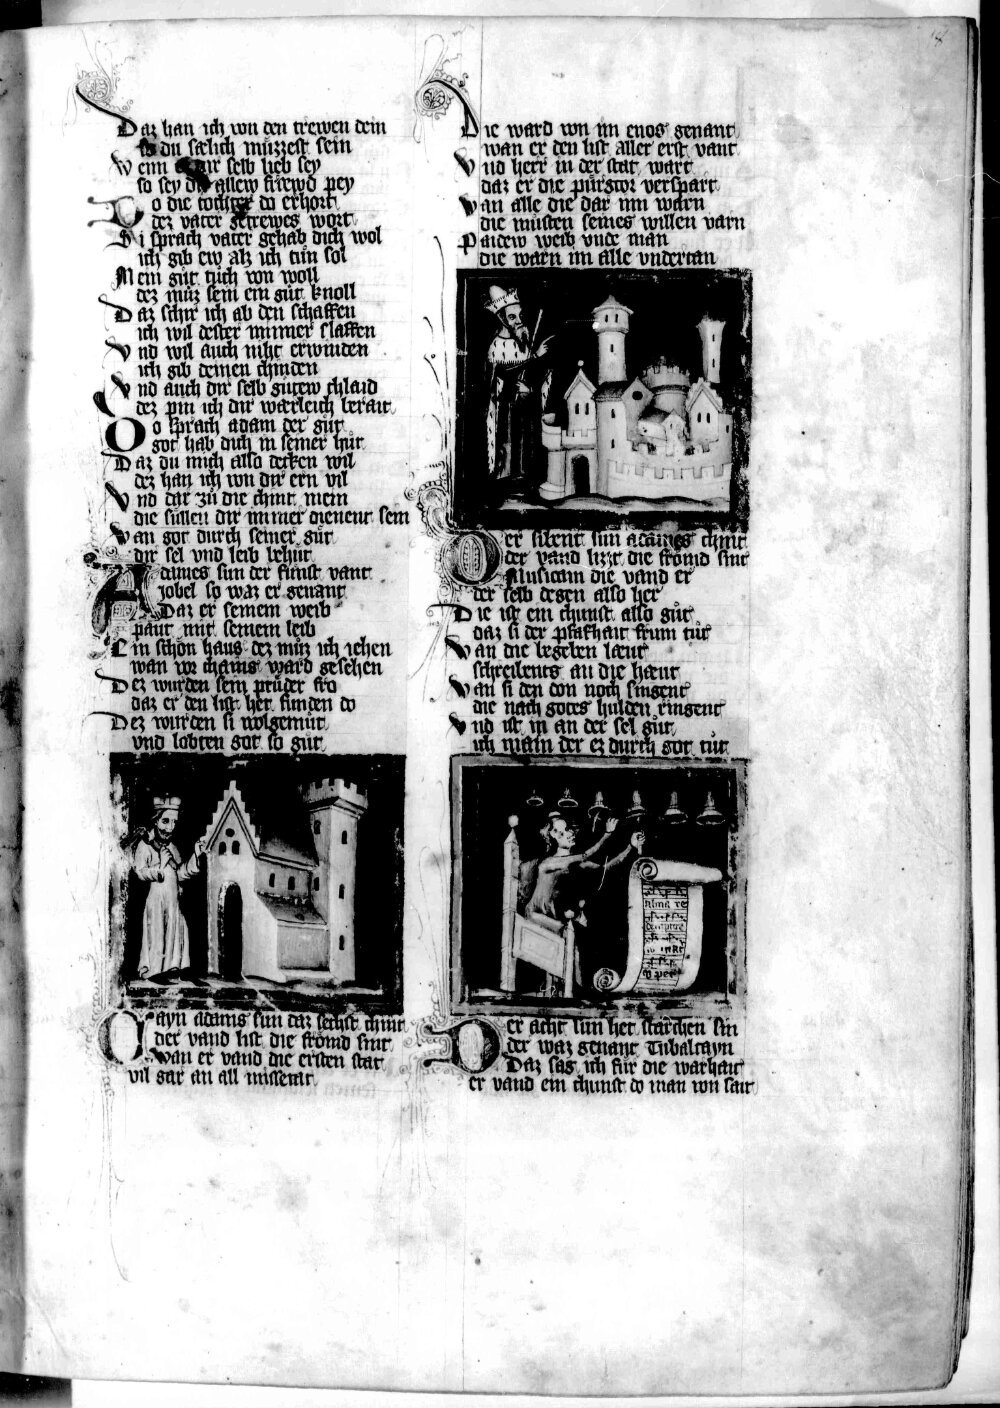 Daz han ich von den trewen dein
so du sælich muzzest sein
Wenn dir selb lieb sey
so sey allew frewd pey
Do die tochter do erhort
dez vater getrewes wort
Si sprach vater gehab dich wol
ich gib ew alz ich tun sol
Mein gut tuch von woll
dez muz sein ein gut knoll
Daz schir ich ab den schaffen
ich wil dester minner slaffen
Vnd wil auch niht erwinden
ich gib deinen chinden
Vnd auch dir selb gutew chlaid
dez pin ich dir wærleich berait
Do sprach adam der gut
got hab dich in seiner hut
Daz du mich also decken wil
dez han ich von dir ern vil
Vnd dar zu die chint mein
die sullen dir immer dienent sein
Van got durch seiner gut
dir sel vnd leib behut
Adames sun der funft vant
Jobel so waz er genant
Daz er seinem weib
paut mit seinem leib
Ein schon haus dez muz ich iehen
wan vor chains ward gesehen
Dez wurden sein pruder fro
daz er den list het funden do
Dez wurden si wolgemut
vnd lobten got so gut
Cayn adams sun daz sechst chint
der vand list die fromd sint
wan er vand die ersten stat
vil gar an all missetat
Die ward von im enos genant
wan er den list aller erst vant
Vnd herr in der stat wart
daz er die purgtor verspart
Van alle die dar inn warn
die musten seines willen varn
Paidew weib vnde man
die warn im alle vndertan
Der sibent sun adames chint
der vand lizt die fromd sint
Musicam die vand er
der selb degen also her
Die ist ein chunst also gut
daz si der pfafhait frum tut
Van die begeben lænt
schreibents an die hænt
Van si den don noch singent
die nach gotes hulden ringent
Vnd ist in an der sel gut
ich main der ez durch got tut
Alma re
Der acht sun het starchen sin
der waz genant Tubalcayn
Daz sag ich fur die warhait
er vand ein chunst do man von sait